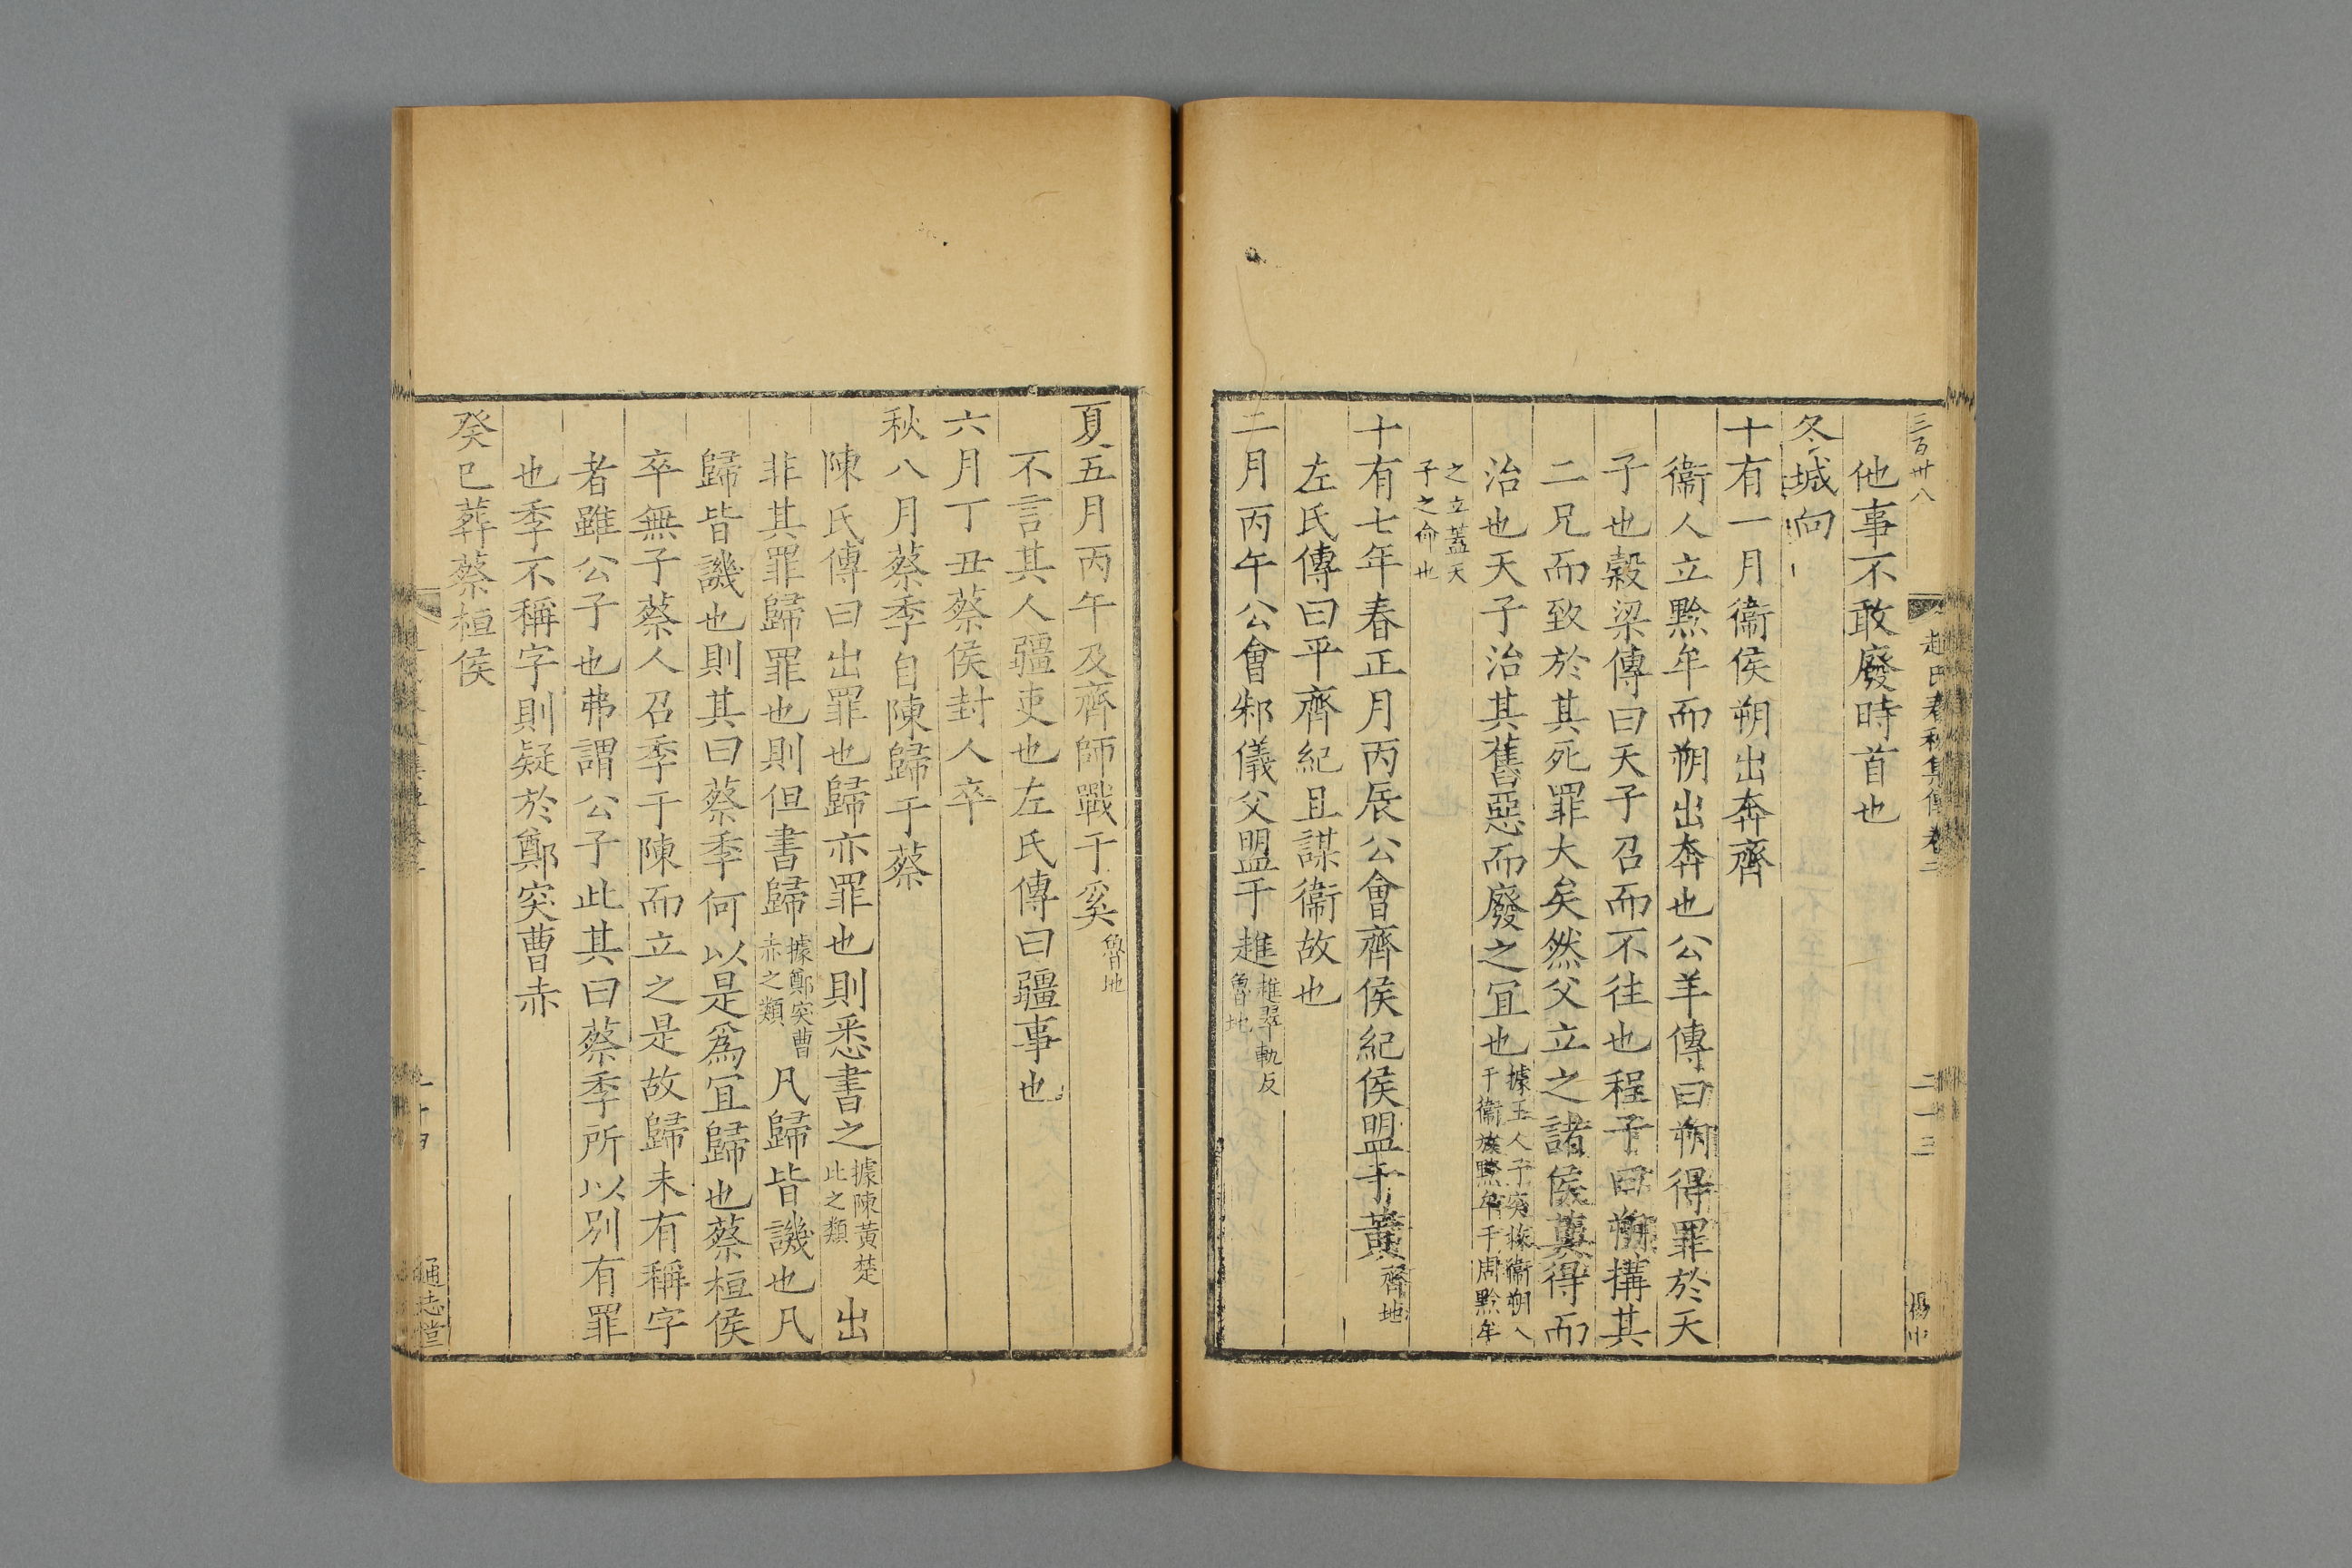 三百卅八
趙氏春秋集傳卷二
二十三
他事不敢廢時首也
冬城向
十有一月衞侯朔出奔齊
衞人立黔牟而朔出奔也公羊傳曰朔得罪於天
子也榖梁傳曰天子召而不往也程子曰朔搆其
二兄而致於其死罪大矣然父立之諸侯莫得而
治也天子治其舊惡而廢之冝也據王人子突捄衞朔入
于衞放黔牟于周黔牟
之立蓋天
子之命也
十有七年春正月丙辰公會齊侯紀侯盟于黃齊地
左氏傳曰平齊紀且謀衞故也
二月丙午公會邾儀父盟于趡趡翠軌反
魯地
夏五月丙午及齊師戰于奚魯地
不言其人疆吏也左氏傳曰疆事也
六月丁丑蔡侯封人卒
秋八月蔡季自陳歸于蔡
陳氏傳曰出罪也歸亦罪也則悉書之據陳黃楚
此之類出
非其罪歸罪也則但書歸據鄭突曹
赤之類凡歸皆譏也凡
歸皆譏也則其曰蔡季何以是爲冝歸也蔡桓侯
卒無子蔡人召季于陳而立之是故歸未有稱字
者雖公子也弗謂公子此其曰蔡季所以別有罪
也季不稱字則疑於鄭突曹赤
癸巳葬蔡桓侯
通志堂